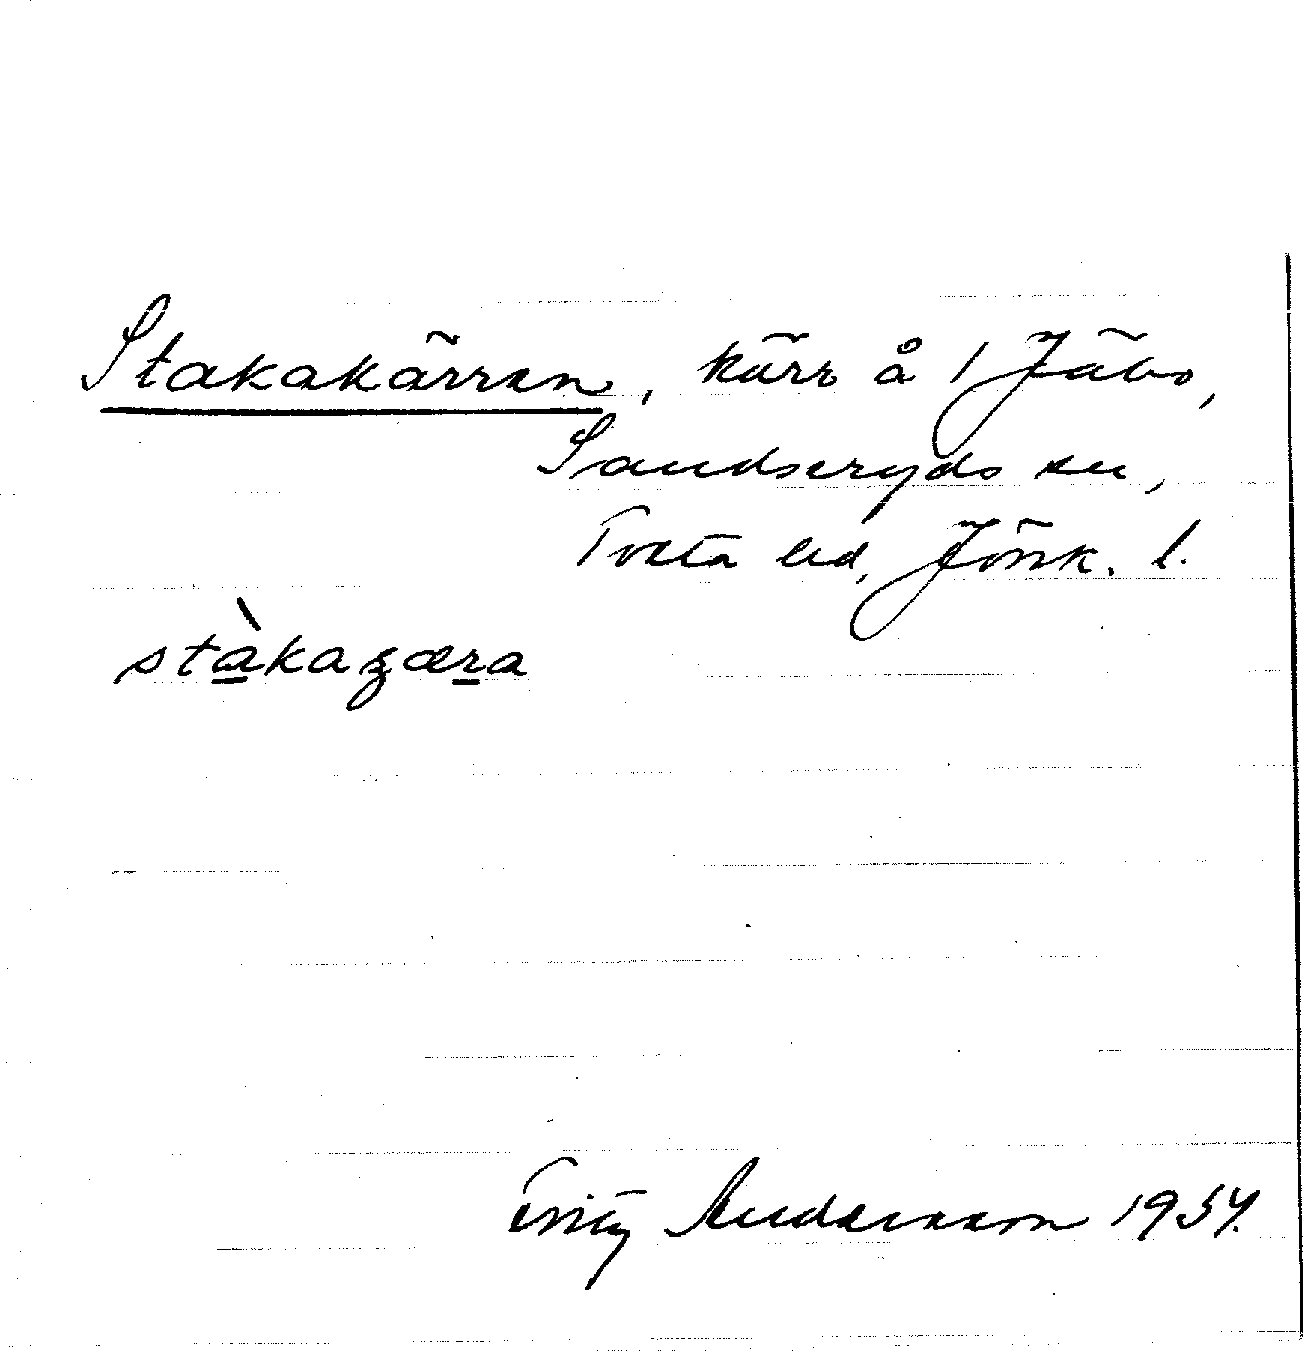 Stakakärren, kärr å 1 Jäbo,
Sandseryds sn,
Tveta hd, Jönk. l.
stàkaʓæra
Fritz Andersson 1934.